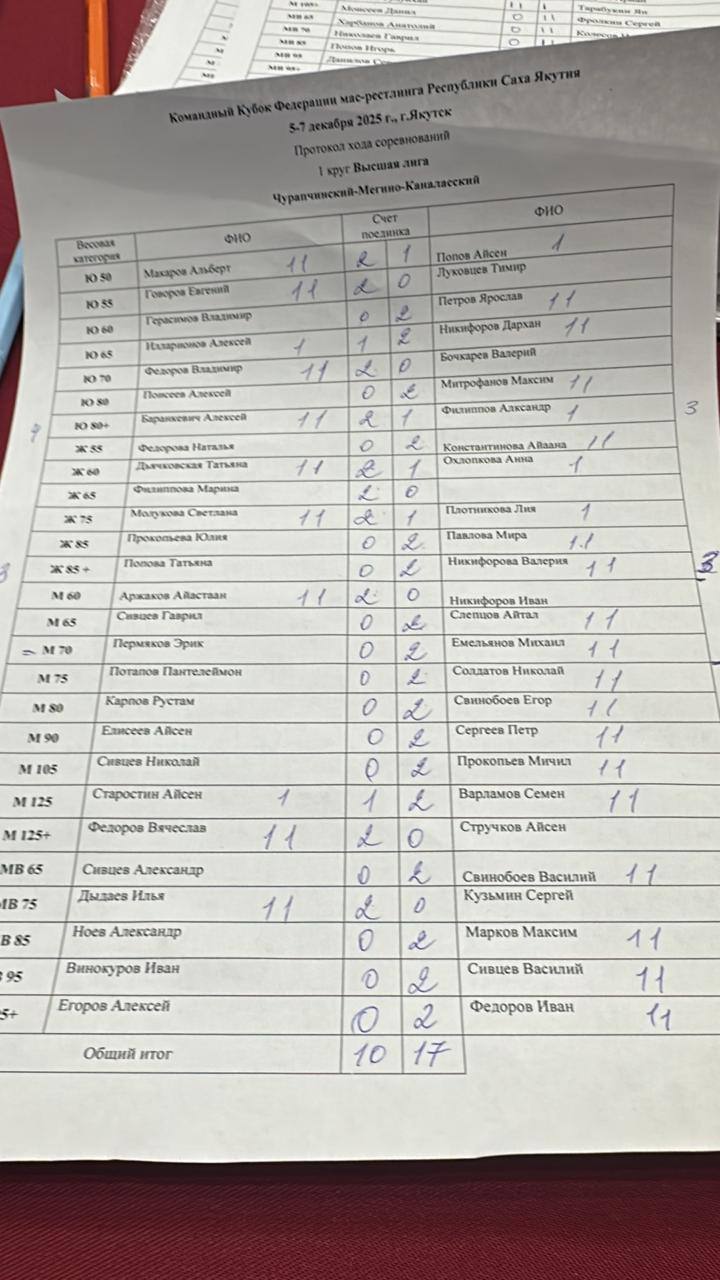 Моисеев Данил
Тарабукин Ян
МВ 65 Харбанов Анатолий 0 11 Фролкин Сергей
МВ 75 Николаев Гаврил 0 11
МВ 85 Попов Игорь 0 11
Командный Кубок Федерации мас-рестлинга Республики Саха Якутия
5-7 декабря 2025 г., г.Якутск
Протокол хода соревнований
1 круг Высшая лига
Чурапчинский-Мегино-Каналасский
Весовая категория ФИО Счет поединка ФИО
Ю 50 Макаров Альберт 11 2 1 Попов Айсен 1
Ю 55 Говоров Евгений 11 2 0 Луковцев Тимир
Ю 60 Герасимов Владимир 0 2 Петров Ярослав 11
Ю 65 Илларионов Алексей 1 1 2 Никифоров Дархан 11
Ю 70 Федоров Владимир 11 2 0 Бочкарев Валерий
Ю 80 Поисеев Алексей 0 2 Митрофанов Максим 11
Ю 80+ Баранкевич Алексей 11 2 1 Филиппов Алксандр 1 3
Ж 55 Федорова Наталья 0 2 Константинова Айаана 11
Ж 60 Дьячковская Татьяна 11 2 1 Охлопкова Анна 1
Ж 65 Филиппова Марина 2 0
Ж 75 Молукова Светлана 11 2 1 Плотникова Лия 1
Ж 85 Прокопьева Юлия 0 2 Павлова Мира 11
Ж 85 + Попова Татьяна 0 2 Никифорова Валерия 11 3
М 60 Аржаков Айастаан 11 2 0 Никифоров Иван
М 65 Сивцев Гаврил 0 2 Слепцов Айтал 11
М 70 Пермяков Эрик 0 2 Емельянов Михаил 11
М 75 Потапов Пантелеймон 0 2 Солдатов Николай 11
М 80 Карпов Рустам 0 2 Свинобоев Егор 11
М 90 Елисеев Айсен 0 2 Сергеев Петр 11
М 105 Сивцев Николай 0 2 Прокопьев Мичил 11
М 125 Старостин Айсен 1 1 2 Варламов Семен 11
М 125+ Федоров Вячеслав 11 2 0 Стручков Айсен
МВ 65 Сивцев Александр 0 2 Свинобоев Василий 11
МВ 75 Дьлаев Илья 11 2 0 Кузьмин Сергей
В 85 Ноев Александр 0 2 Марков Максим 11
95 Винокуров Иван 0 2 Сивцев Василий 11
5+ Егоров Алексей 0 2 Федоров Иван 11
Общий итог 10 17